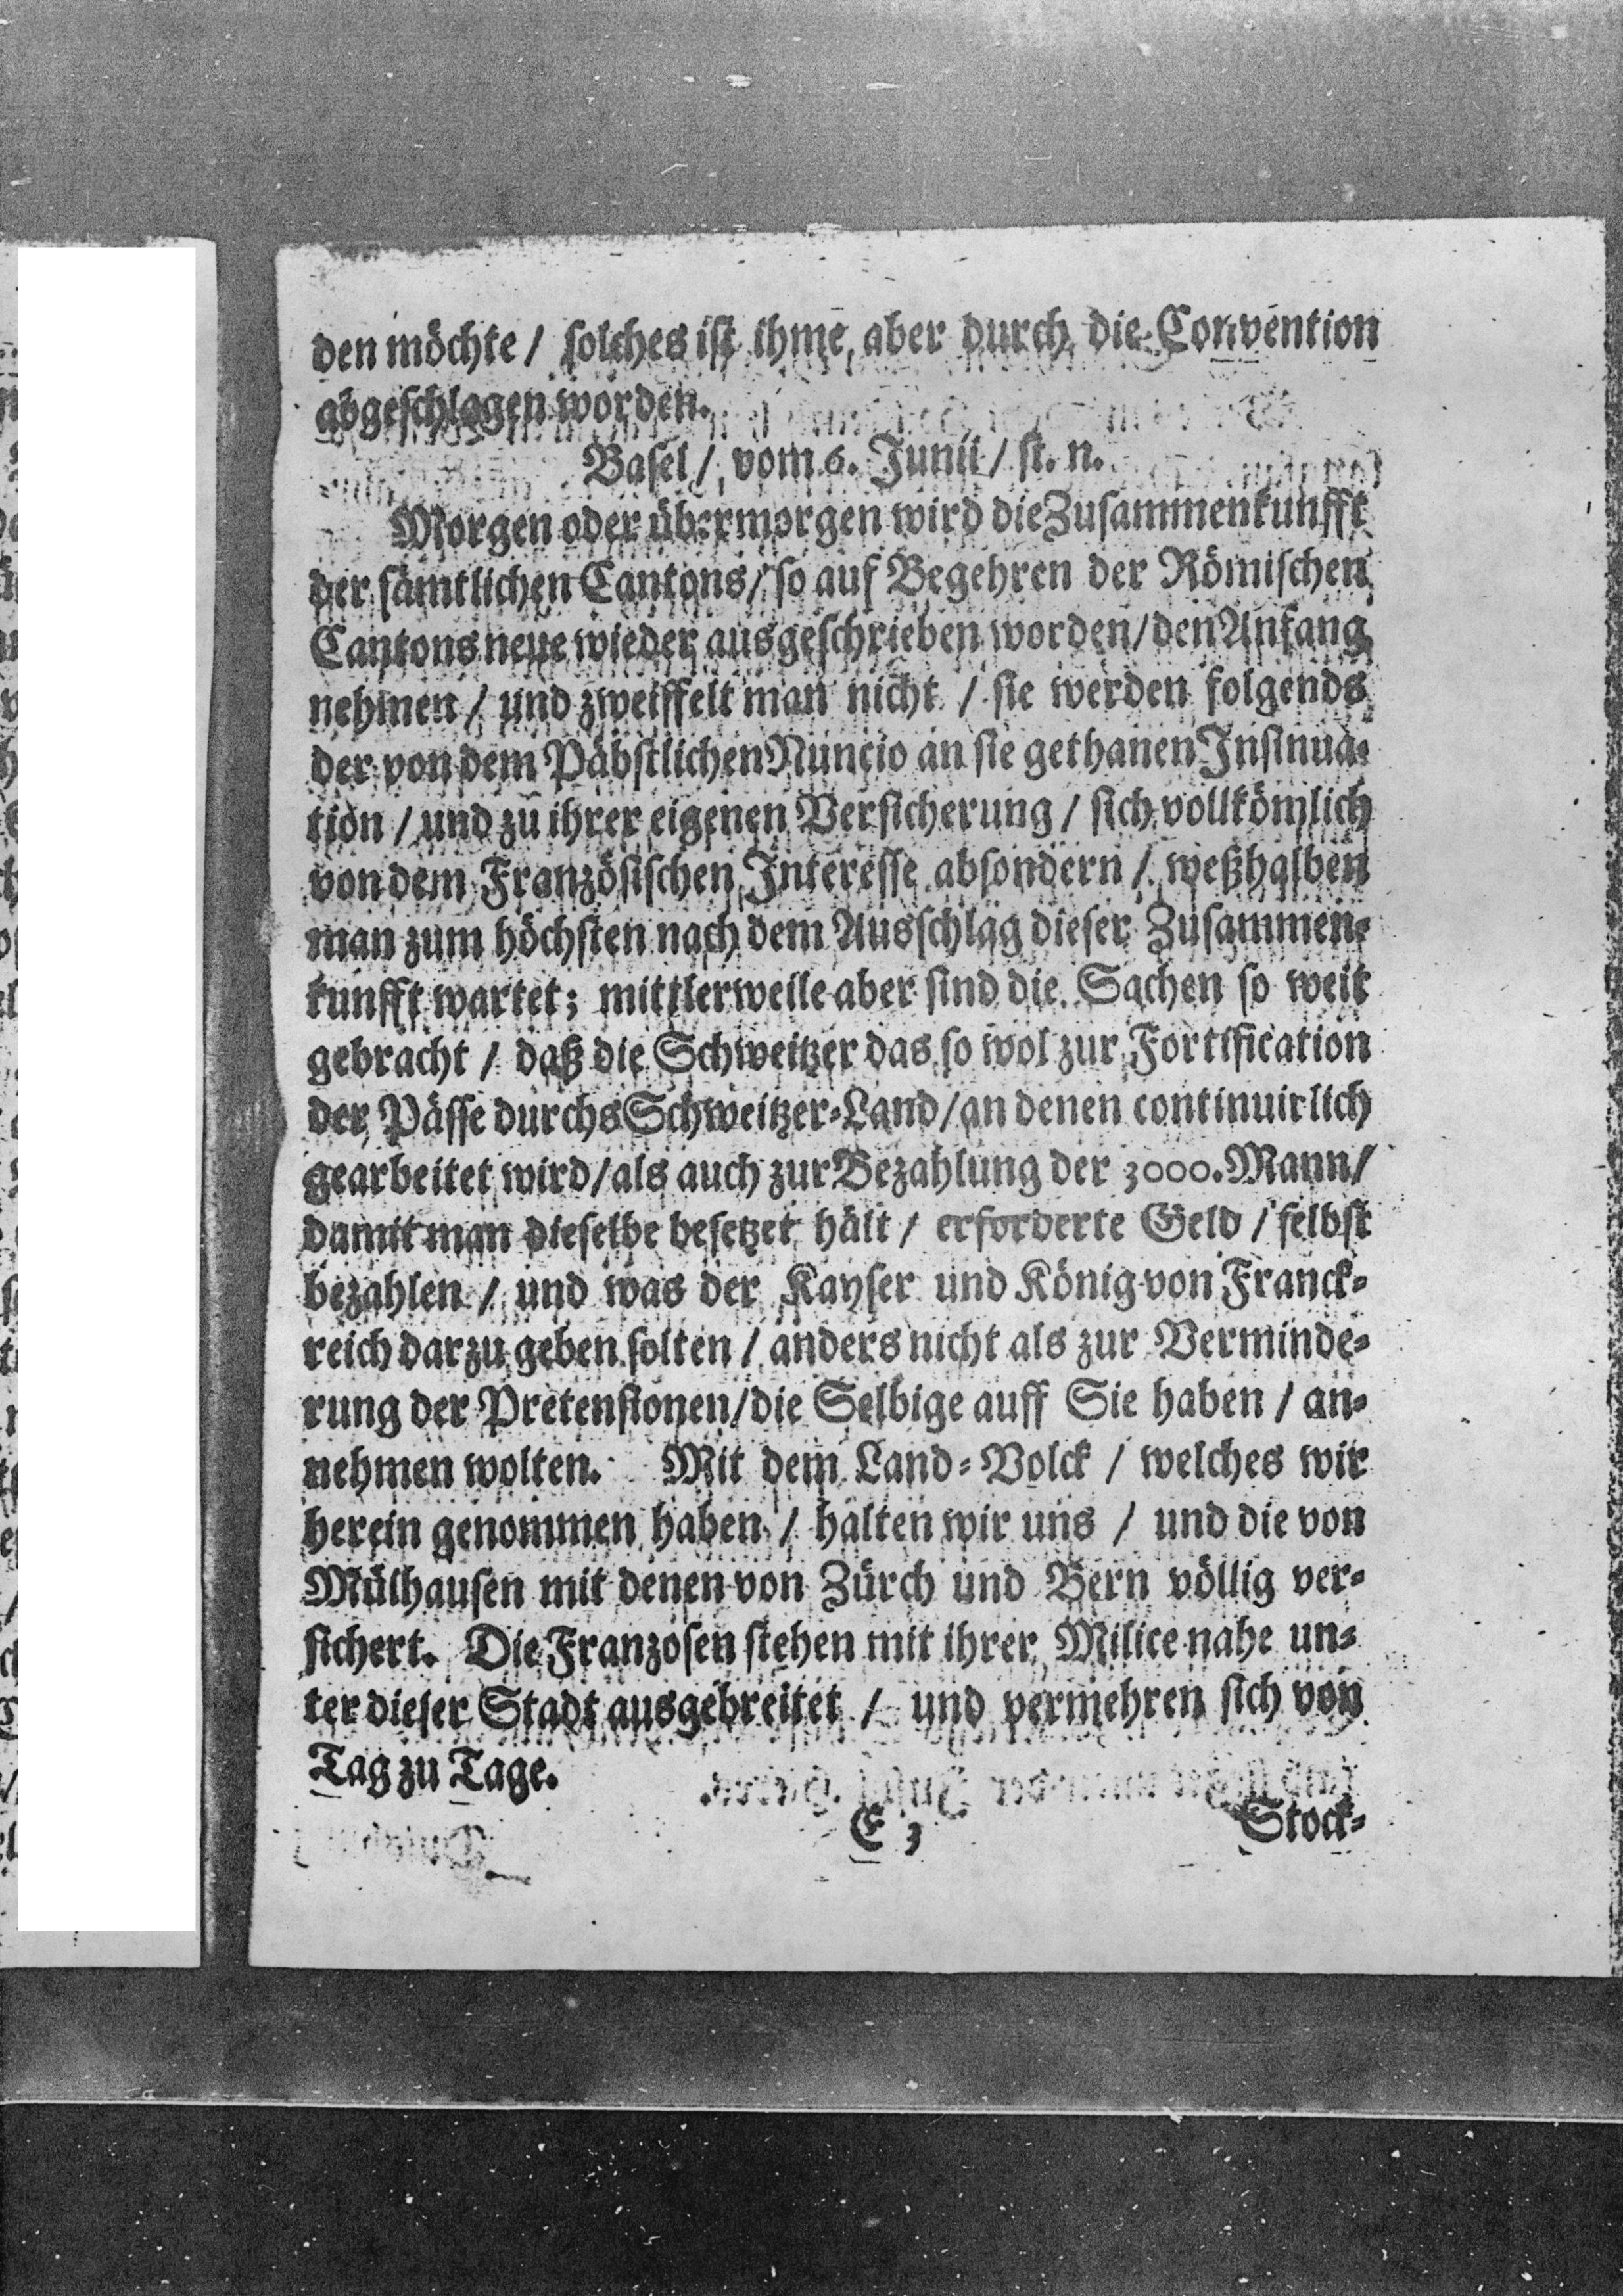 den möchte / solches ist ihme aber durch die Convention
abgeschlagen worden.
Basel / vom 6. Junii / st. n.
Morgen oder übermorgen wird die Zusammenkunfft
der sämtlichen Cantons / so auf Begehren der Römischen
Cantons neue wieder ausgeschrieben worden / den Anfang
nehmen / und zweiffelt man nicht / sie werden folgends
der von dem Päbstlichen Nuncio an sie gethanen Insinua-
tion / und zu ihrer eigenen Versicherung / sich vollkömlich
von dem Französischen Interesse absondern / weßhalben
man zum höchsten nach dem Ausschlag dieser Zusammen-
kunfft wartet; mittlerweile aber sind die Sachen so weit
gebracht / daß die Schweitzer das so wol zur Fortification
der Pässe durchs Schweitzer-Land / an denen continuirlich
gearbeitet wird / als auch zur Bezahlung der 3000. Mann /
damit man dieselbe besetzet hält / erforderte Geld / selbst
bezahlen / und was der Kayser und König von Franck-
reich darzu geben solten / anders nicht als zur Verminde-
rung der Pretensionen / die Selbige auff Sie haben / an-
nehmen wolten. Mit dem Land-Volck / welches wir
herein genommen haben / halten wir uns / und die von
Mülhausen mit denen von Zürch und Bern völlig ver-
sichert. Die Franzosen stehen mit ihrer Milice nahe un-
ter dieser Stadt ausgebreitet / und vermehren sich von
Tag zu Tage.
E 3 Stock-